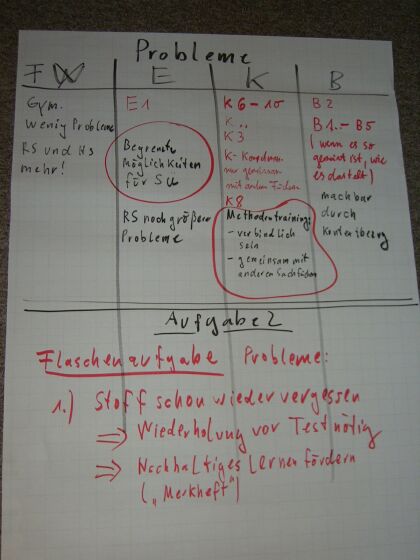 Probleme
FW E K B
Gym.
wenig Probleme
RS und HS
mehr!
E1
Begrenzte
Möglichkeiten
für SÜ
RS noch größere
Probleme
K6-10
K..
K3
K-Koordinan
nur gemeinsam
mit anderen Fächern
K8
Methodentraining:
- verbindlich
sein
- gemeinsam mit
anderen Sachfächern
B2
B1.-B5
(wenn es so
gemeint ist, wie
es dasteht)
machbar
durch
Kontextbezug
Aufgabe 2
Flaschenaufgabe Probleme:
1.) Stoff schon wieder vergessen
⇒ Wiederholung vor Test nötig
⇒ Nachhaltiges Lernen fördern
(„Merkheft")